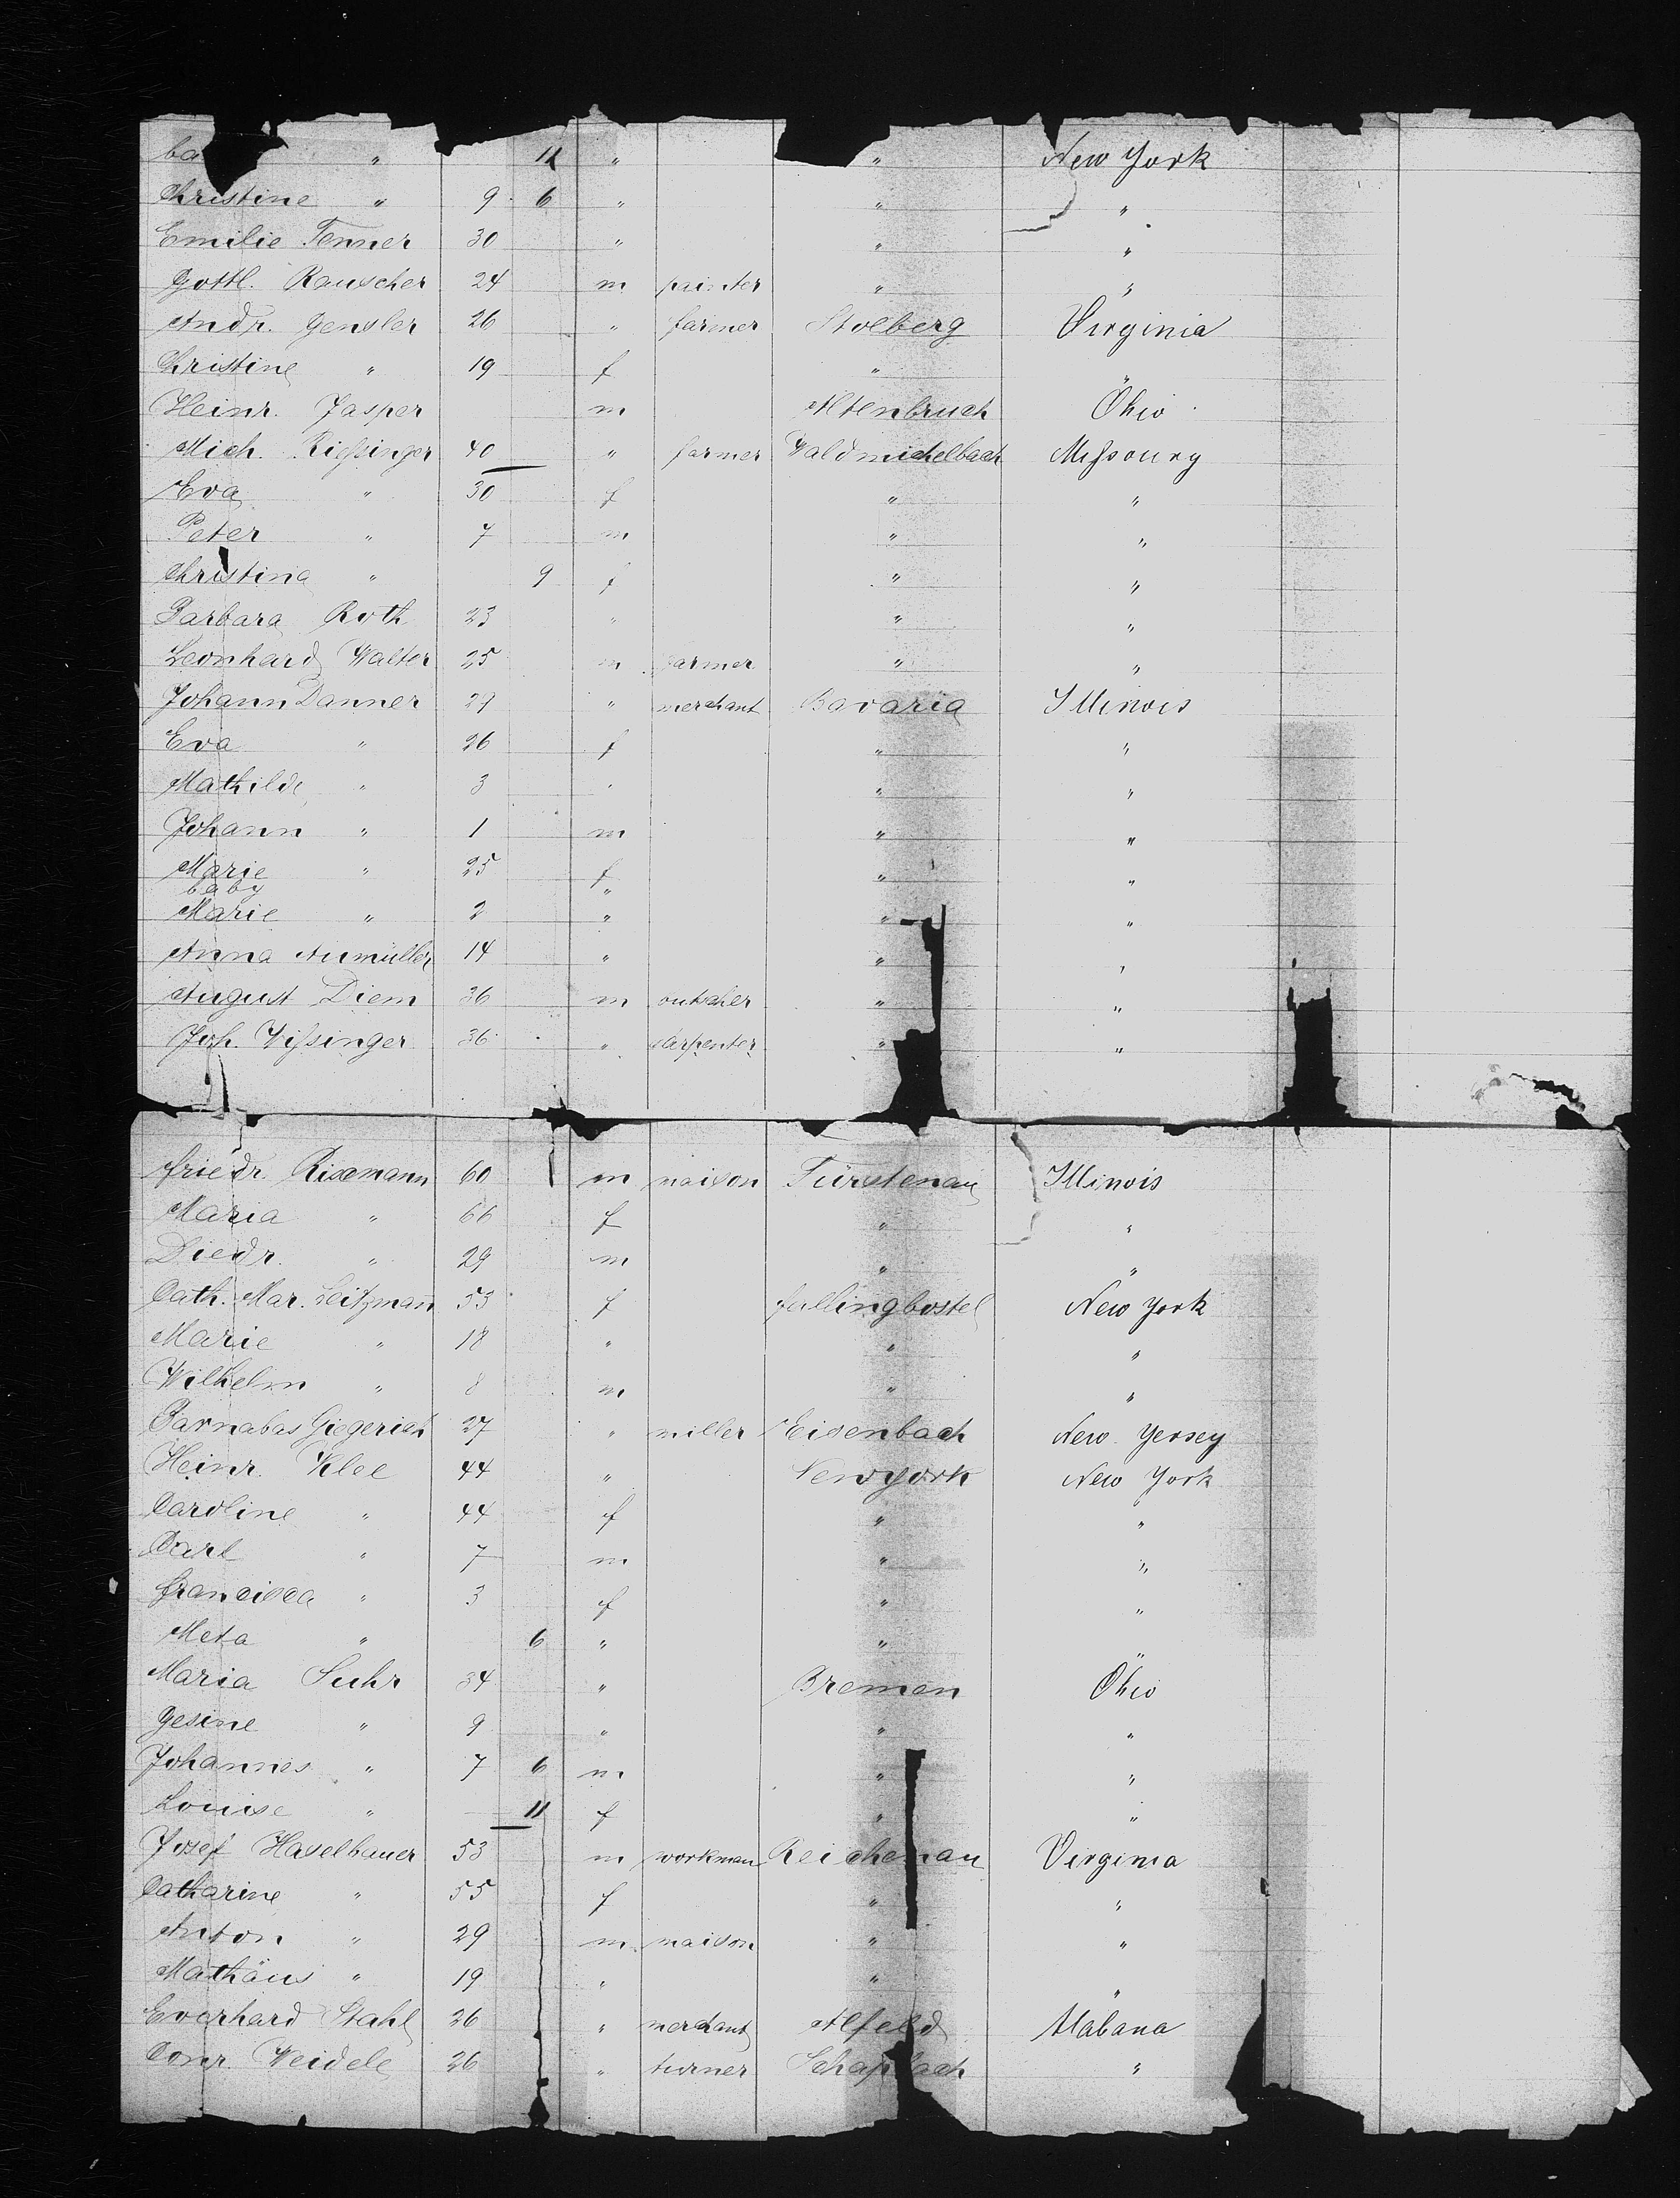 " 11 " " New York
Christine " 9 6 " " "
Emilie Fenner 30 " " "
Gottl. Rauscher 24 m painter " "
Andr. Gensler 26 " farmer Stolberg Virginia
Christine " 19 f " "
Heinr. Jasper m Altenbruch Ohio
Mich. Rießinger 40 " farmer Waldmichelbach Mißoury
Eva " 30 f " "
Peter " 7 m " "
Christina " 9 f " "
Barbara Roth 23 " " "
Leonhard Walter 25 m farmer " "
Johann Danner 29 " merchant Bavaria Illinois
Eva " 26 f " "
Mathilde " 3 " " "
Johann " 1 m " "
Marie " 25 f " "
baby "
Marie " 2 " " "
Anna Aumüller 14 " " "
August Diem 36 m " "
Joh. Wißinger 36 " carpenter " "
Friedr. Risemann 60 m maison Fürstenau Illinois
Maria " 66 f " "
Diedr. " 29 m " "
Cath. Mar. Leitzmann 53 f fallingbostel New York
Marie " 18 " " "
Wilhelm " 8 m " "
Barnabas Giegerich 27 " miller Eisenbach New Yersey
Heinr. Klee 44 " Newyork New York
Caroline " 44 f " "
Carl " 7 m " "
Francisca " 3 f " "
Meta " 6 " " "
Maria Suhr 34 " Bremen Ohio
Gesine " 9 " " "
Johannes " 7 6 m " "
Louise " 11 f " "
Josef Haselbauer 53 m workman Reichenau Virginia
Catharine " 55 f " "
Anton " 29 m maison " "
Mathäus " 19 " " "
Everhard Stahl 26 " merchant Alfeld Alabana
Conr. Weidele 26 " turner Schapbach "